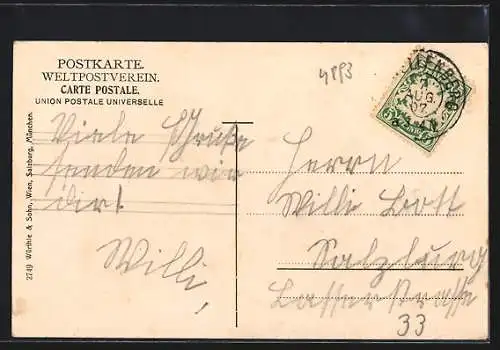 POSTKARTE.
WELTPOSTVEREIN.
CARTE POSTALE.
UNION POSTALE UNIVERSELLE
4893
AUG.
07
2749 Würthle & Sohn, Wien, Salzburg, München.
Viele Grüße
senden wir
dir!
Willi,
Herrn
Willi Bott
Salzburg
Lasserstrasse
33